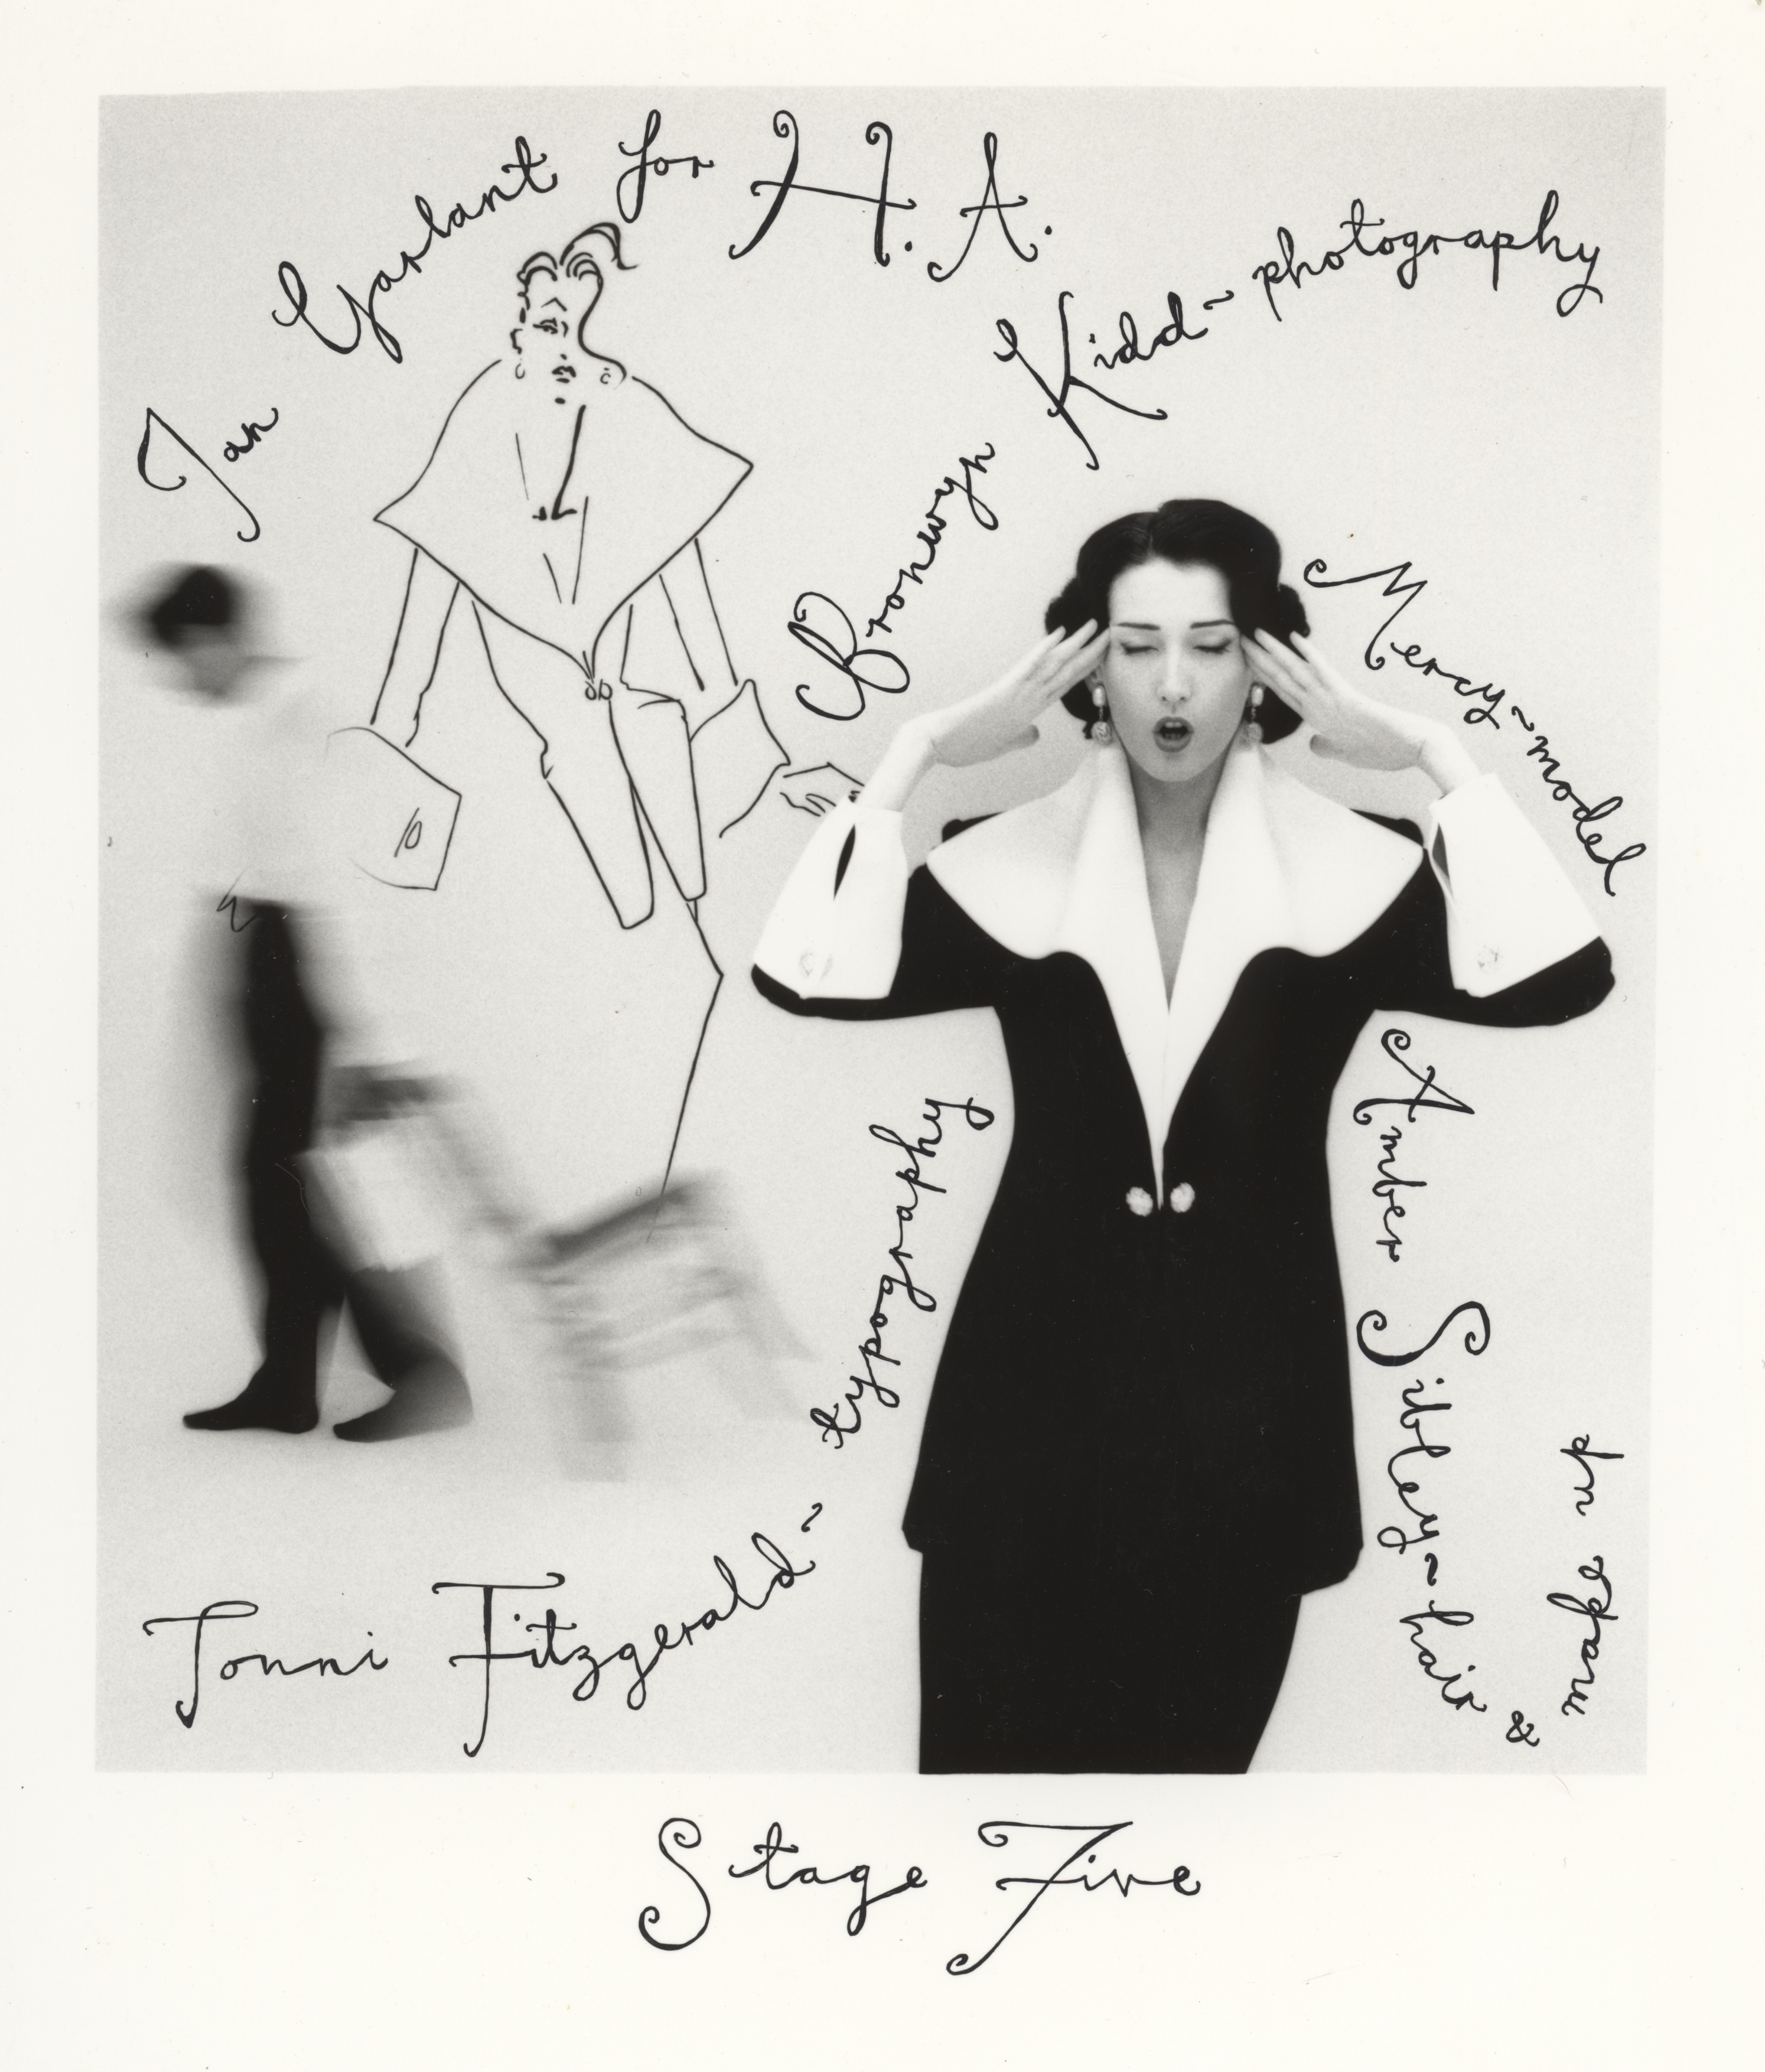 Ian Garlant for H.A.
Bronwyn Kidd ~ photography
Mercy ~ model
Amber Sibley ~ hair & make up
Tonni Fitzgerald ~ typography
Stage Five